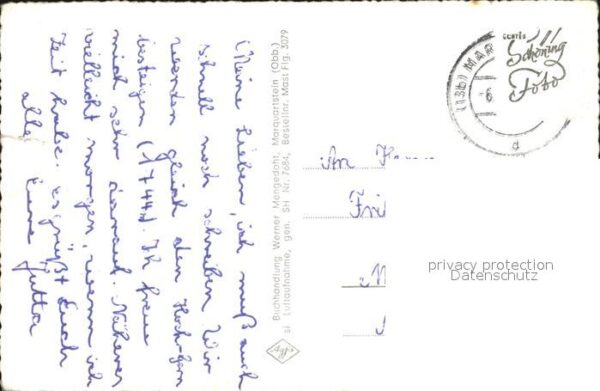 Meine Lieben, ich muß auch
schnell noch schreiben. Wir
werden gleich den Hochgern
besteigen (1744). Ich freue
mich sehr darauf. Näheres
vielleicht morgen, wenn ich
Zeit habe. Es grüßt Euch
alle Eure Jutta
Buchhandlung Werner Mengedoht, Marquartstein (Obb.)
si Luftaufnahme, gen. SH Nr. 7684, Bestellnr. Mast Flg. 3079
Agfa
(13b) MAR
6
a
Echte
Schöning
Foto
An
privacy protection
Datenschutz